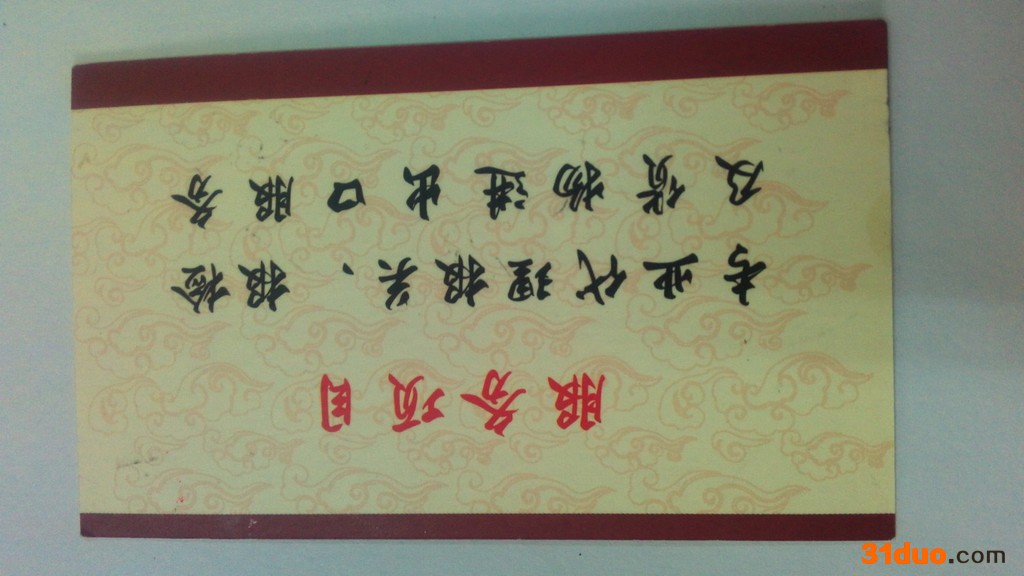 服务项目
专业代理报关、报检
及货物进出口服务
31duo.com